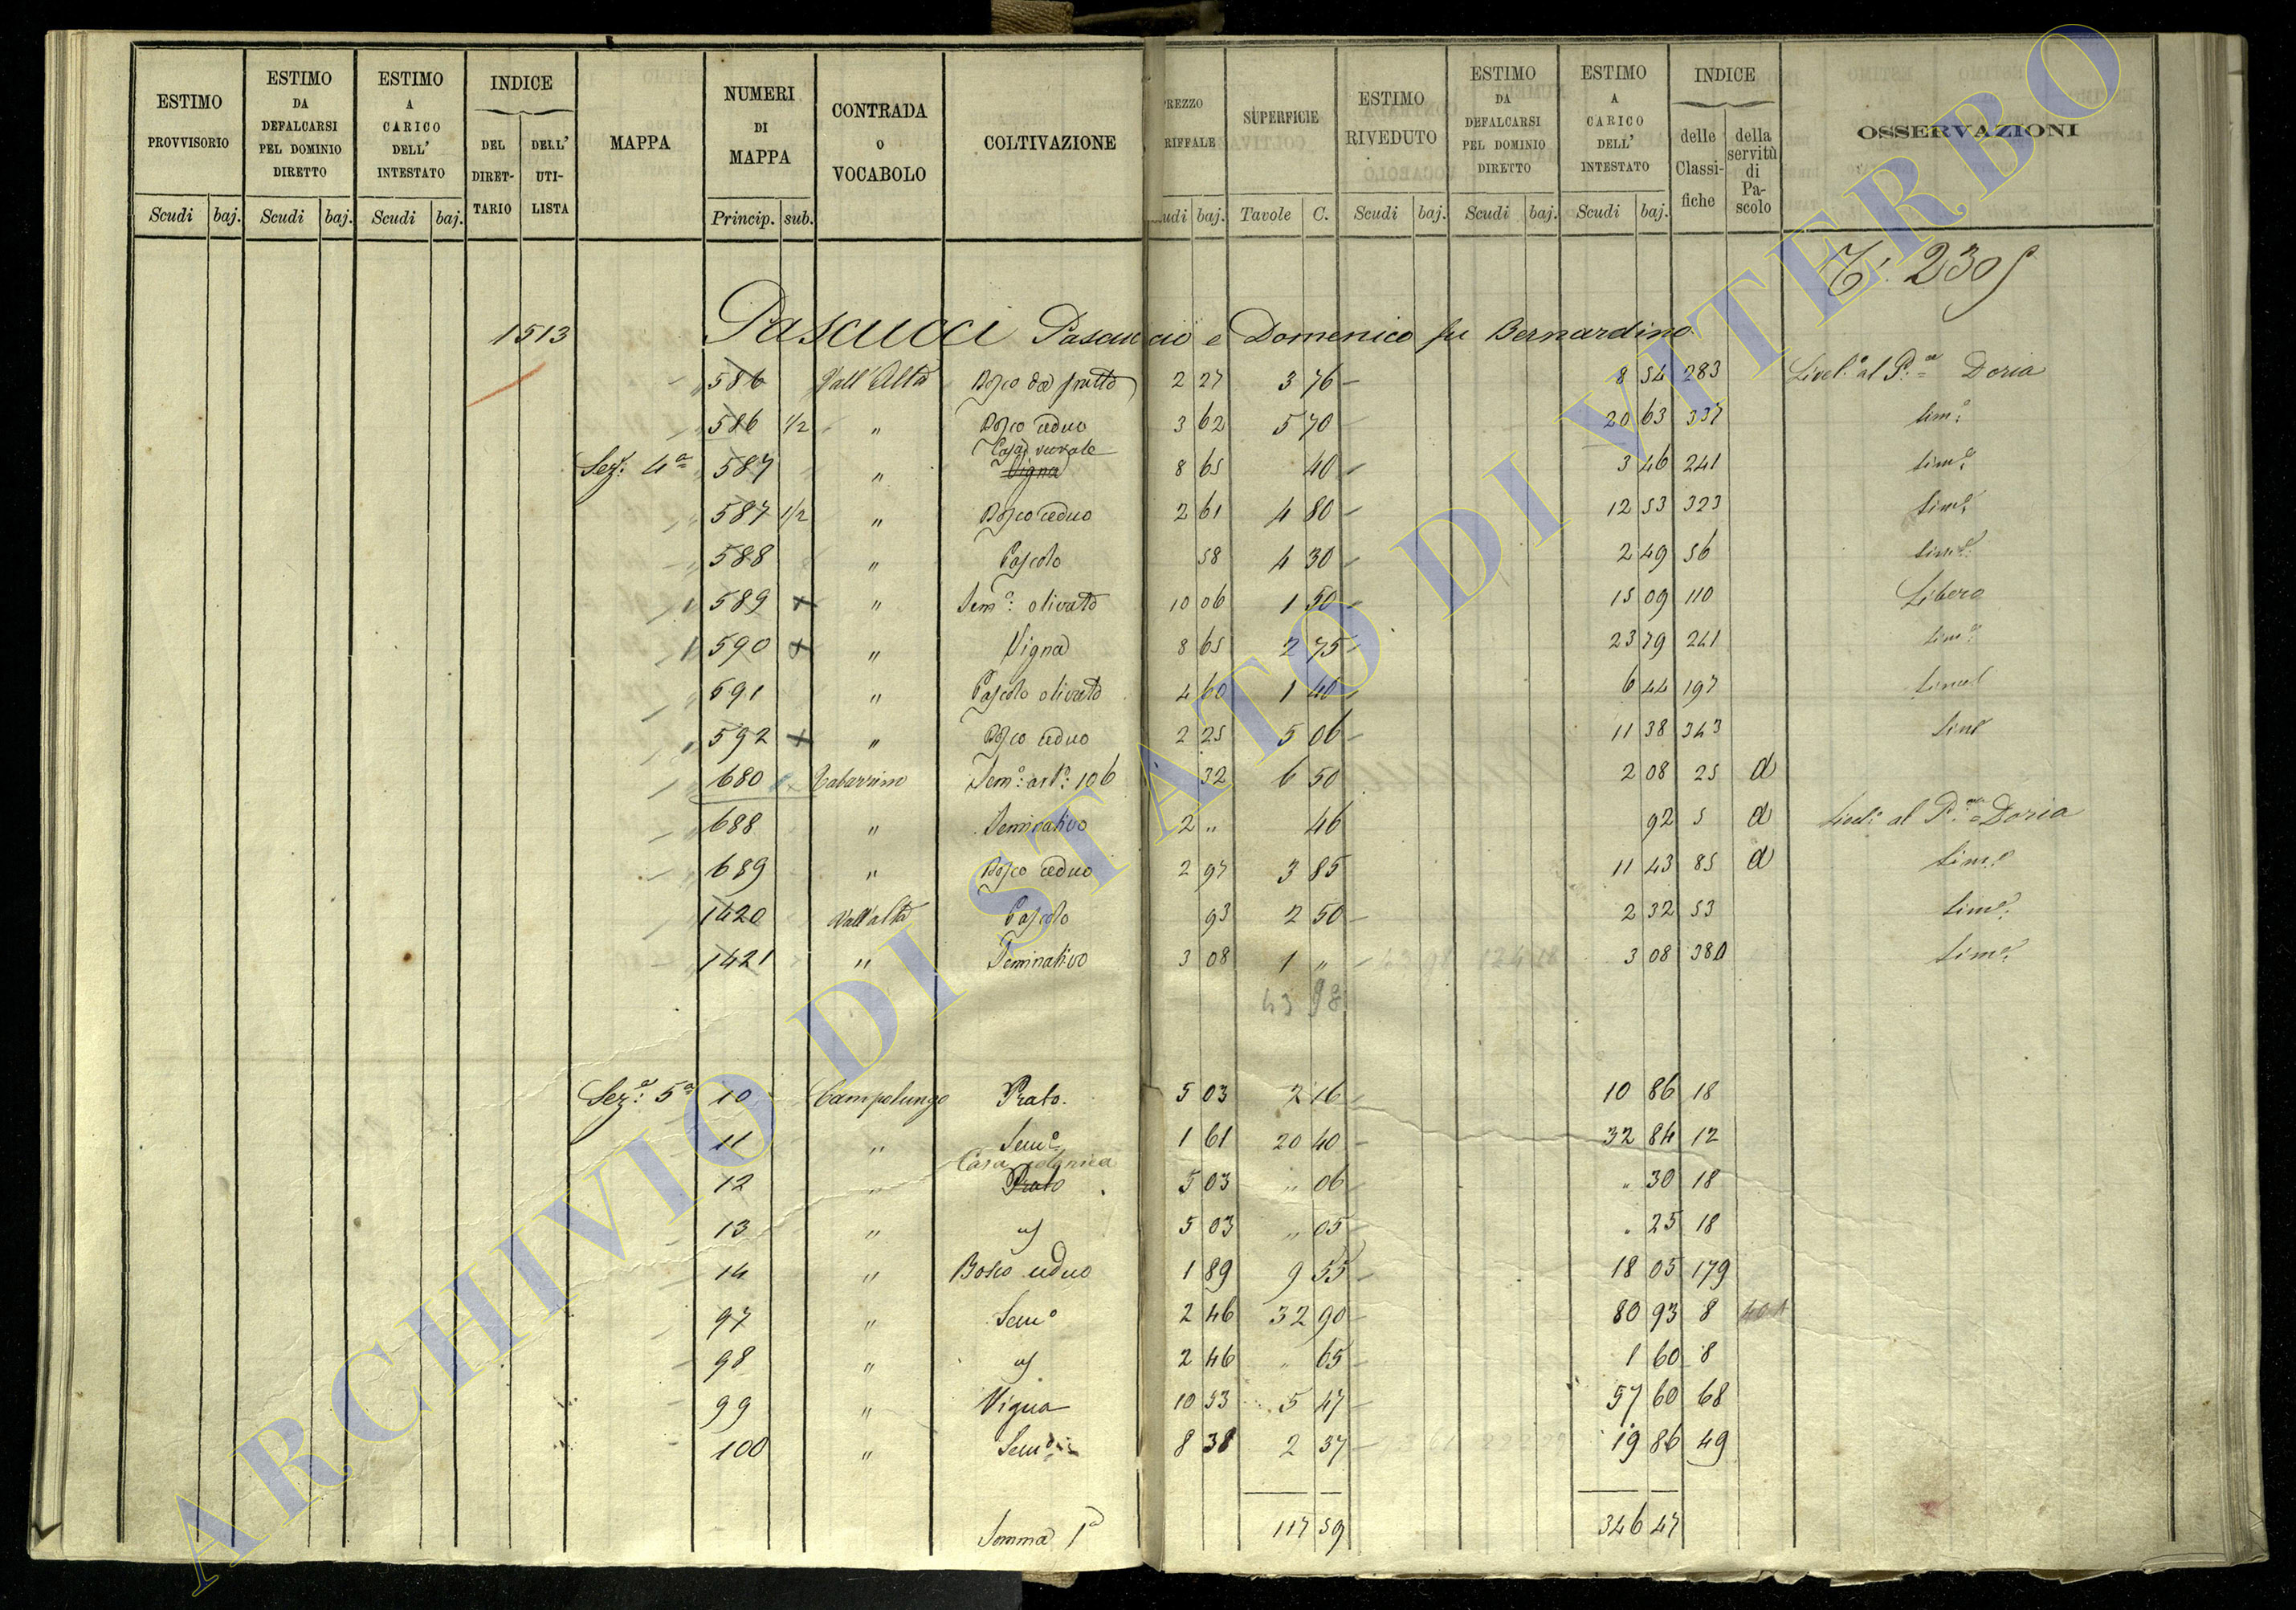 ESTIMO PROVVISORIO | ESTIMO DA DEFALCARSI PEL DOMINIO DIRETTO | ESTIMO A CARICO DELL' INTESTATO | INDICE DEL DIRET-TARIO | DELL' UTI-LISTA | MAPPA | NUMERI DI MAPPA | CONTRADA O VOCABOLO | COLTIVAZIONE | REZZO RIFFALE | SUPERFICIE | ESTIMO RIVEDUTO | ESTIMO DA DEFALCARSI PEL DOMINIO DIRETTO | ESTIMO A CARICO DELL' INTESTATO | INDICE delle Classi-fiche | della servitù di Pa-scolo | OSSERVAZIONI
Scudi baj. | Scudi baj. | Scudi baj. | Princip. sub. | udi baj. | Tavole C. | Scudi baj. | Scudi baj. | Scudi baj.
1513 Pascucci Pascuccio e Domenico fu Bernardino
586 Vall'Alta Bosco da frutto 2 27 3 76 8 54 283 Livel.º al P. Doria
586 1/2 " Bosco ceduo 3 62 5 70 20 63 337 Sim.e
Sez. 4a 587 " Casa rurale Vigna 8 65 40 3 46 241 Sim.e
587 1/2 " Bosco ceduo 2 61 4 80 12 53 323 Sim.e
588 " Pascolo 58 4 30 2 49 56 Sim.e
589 + " Sem.º olivato 10 06 1 50 15 09 110 Libero
590 + " Vigna 8 65 2 75 23 79 241 Sim.e
591 " Pascolo olivato 4 60 1 40 6 44 197 Sim.e
592 + " Bosco ceduo 2 25 5 06 11 38 343 Sim.e
680 Sem.º art.º 106 32 6 50 2 08 25 d
688 " Seminativo 2 " 46 92 5 d Livel.º al P. Doria
689 " Bosco ceduo 2 97 3 85 11 43 85 d Sim.e
1420 Vall'alta Pascolo 93 2 50 2 32 53 Sim.e
1421 " Seminativo 3 08 1 " 3 08 380 Sim.e
43 98
Sez. 5a 10 Campolungo Prato. 5 03 2 16 10 86 18
11 " Sem.º 1 61 20 40 32 84 12
12 " Casa colonica Prato 5 03 " 06 " 30 18
13 " 5 03 " 05 " 25 18
14 " Bosco ceduo 1 89 9 55 18 05 179
97 " Sem.º 2 46 32 90 80 93 8
98 " 2 46 " 65 1 60 8
99 " Vigna 10 53 5 47 57 60 68
100 " Sem.º 8 38 2 37 19 86 49
Somma 1a 117 59 346 47
ARCHIVIO DI STATO DI VITERBO